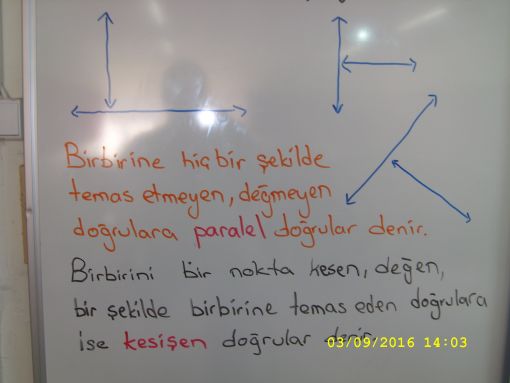 Birbirine hiç bir şekilde
temas etmeyen, değmeyen
doğrulara paralel doğrular denir.
Birbirini bir nokta kesen, değen,
bir şekilde birbirine temas eden doğrulara
ise kesişen doğrular denir
03/09/2016 14:03